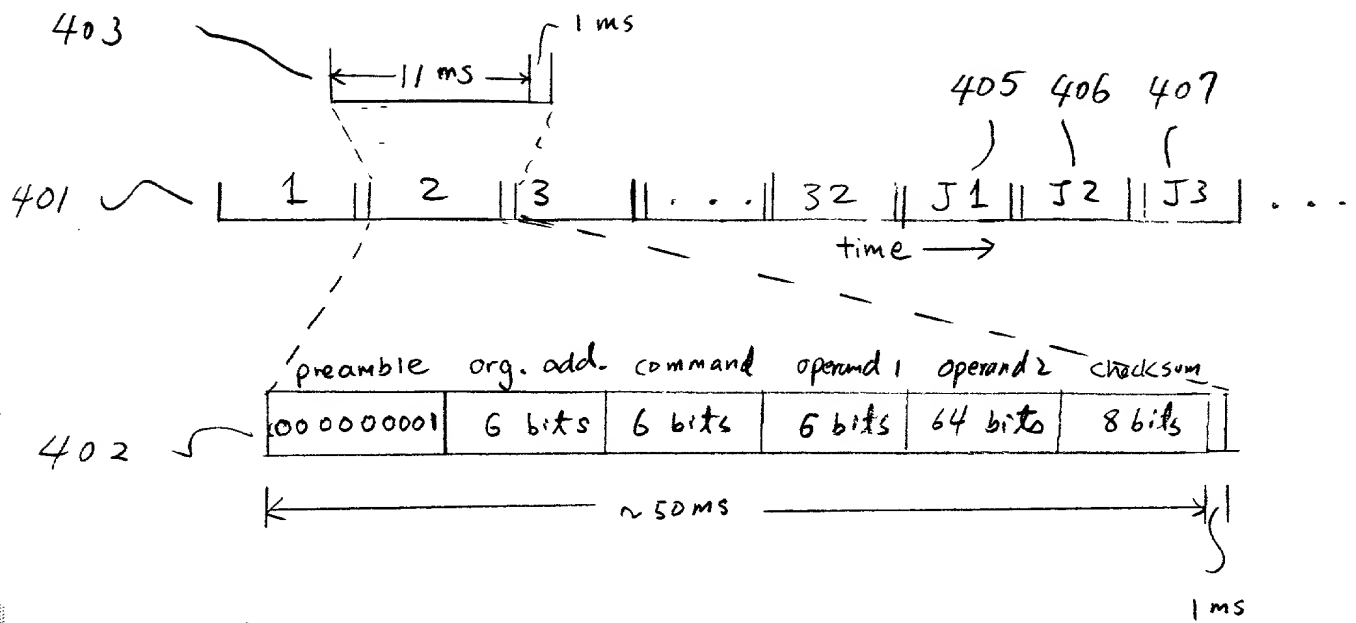 403
1 ms
11 ms
405 406 407
401 1 2 3 . . . 32 J1 J2 J3 . . .
time
preamble org. add. command operand 1 operand 2 checksum
402 000000001 6 bits 6 bits 6 bits 64 bits 8 bits
~50 ms
1 ms